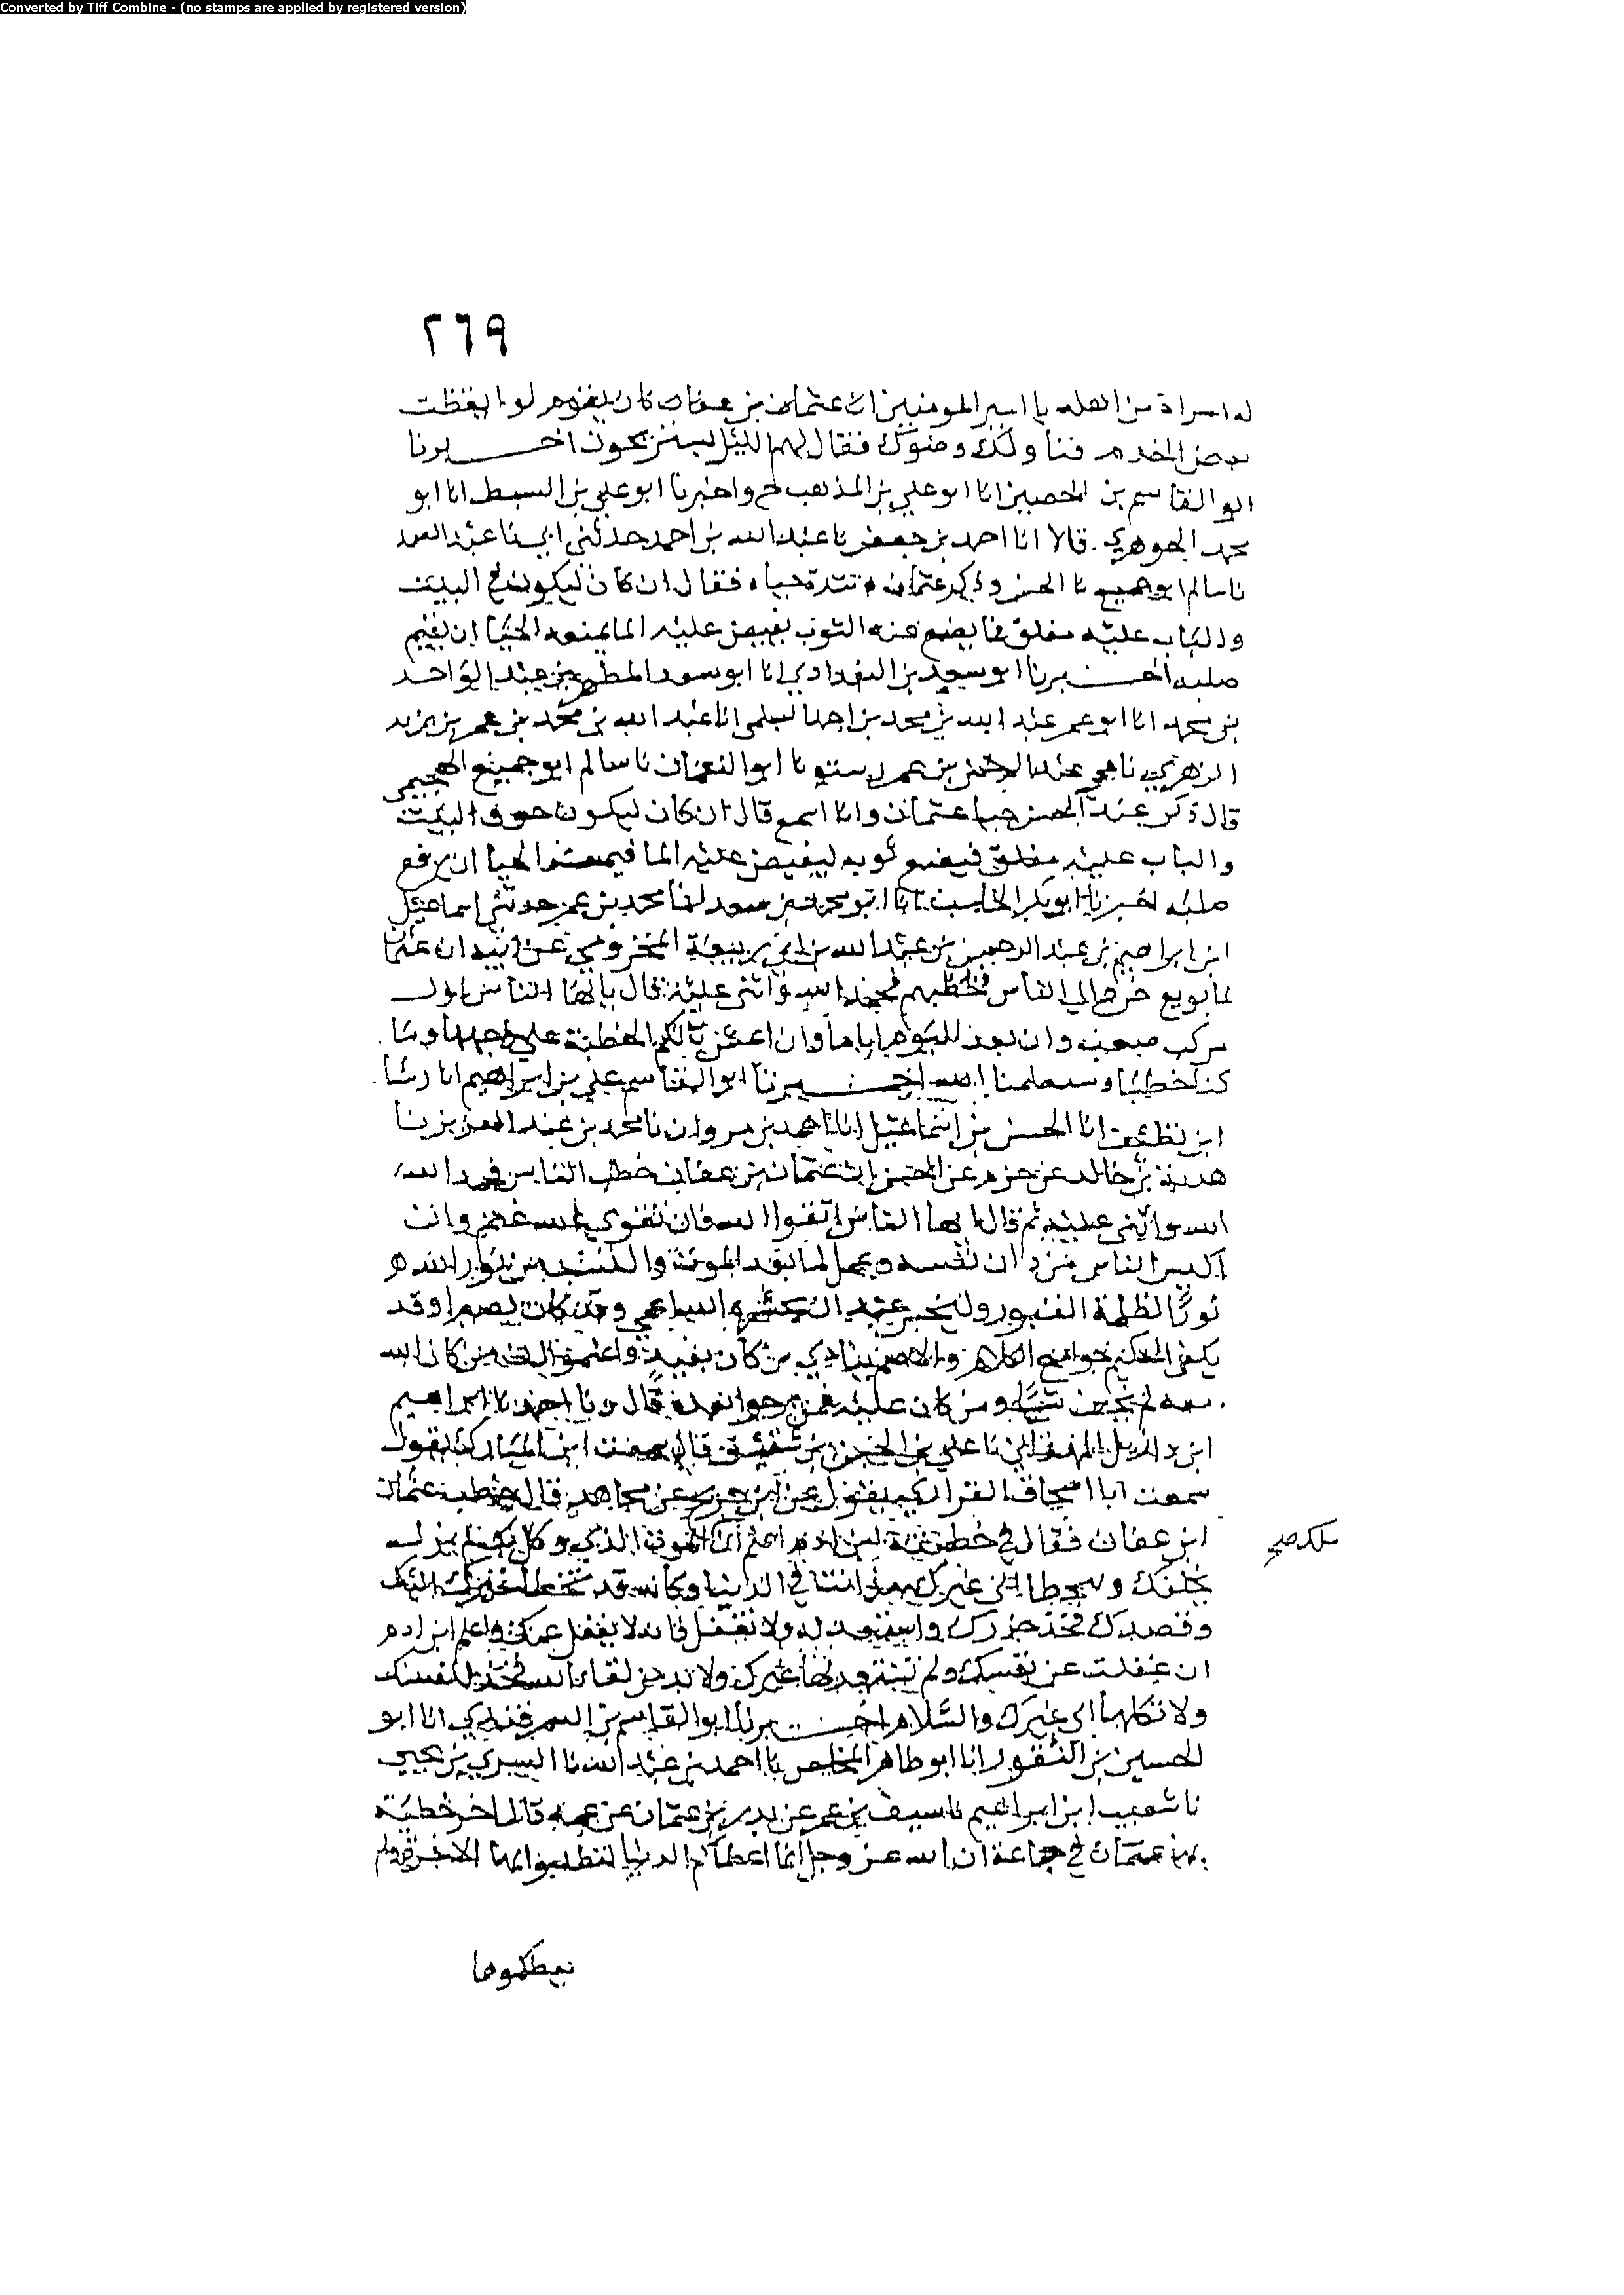 Converted by Tiff Combine - (no stamps are applied by registered version)
٢٦٩
له امراة من اهله يا امير المومنين ان عثمان بن عفان كان يقوم لو ايقظت
بعض الخدم فناولك وضوك فقال لهم الليل يستريحون اخبرنا
ابو القاسم بن الحصين انا ابو علي بن المذهب ح واخبرنا ابو علي بن السبط انا ابو
محمد الجوهري قالا انا احمد بن جعفر نا عبد الله بن احمد حدثني ابي نا عبد الصمد
نا سالم ابو جميع نا الحسن وذكر عثمان وشدة حياه فقال ان كان ليكون في البيت
والباب عليه مغلق فما يضع عنه الثوب ليفيض عليه الما يمنعه الحيا ان يقيم
صلبه اخبرنا ابو سعد بن البغدادي انا ابو سعد المطهر بن عبد الواحد
بن محمد انا ابو عمر عبد الله بن محمد بن احمد السلمي انا عبد الله بن محمد بن عمر بن يزيد
الزهري نا عمي عبد الرحمن بن عمر رسته نا ابو النعمان نا سالم ابو جميع الهجيمي
قال ذكر عند الحسن حيا عثمان وانا اسمع قال ان كان ليكون جوف البيت
والباب عليه مغلق فيضع ثوبه ليفيض عليه الما فيمنعه الحيا ان يرفع
صلبه اخبرنا ابو بكر محمد بن سعد انا محمد بن عمر حدثني اسماعيل
ابن ابراهيم بن عبد الرحمن بن عبد الله بن ابي ربيعة المخزومي عن ابيه ان عثمان
لما بويع خرج الى الناس فخطبهم فحمد الله واثنى عليه ثم قال يا ايها الناس اول
مركب صعب وان بعد اليوم اياما وان اعش تاتكم الخطبة على وجهها وما
كنا خطبا وسيعلمنا الله اخبرنا ابو القاسم علي بن ابراهيم انا رشا
ابن نظيف انا الحسن بن اسماعيل انا احمد بن مروان نا محمد بن عبد العزيز نا
هدبة بن خالد عن حزم عن الحسن ان عثمان بن عفان خطب الناس فحمد الله
واثنى عليه ثم قال يا ايها الناس اتقوا الله فان تقوى الله غنم وان
اكيس الناس من دان نفسه وعمل لما بعد الموت واكتسب من نور الله
نورا لظلمة القبور وليخش عبد ان يحشره الله اعمى وقد كان بصيرا وقد
يكفي الحكيم جوامع الكلام والاصم ينادى من كان بعيد واعلموا ان من كان الله
معه لم يخف شيا ومن كان عليه فمن يرجو بعده قال ونا احمد نا ابراهيم
ابن نا علي بن الحسن بن شقيق قال سمعت ابن المبارك يقول
سمعت ابا اسحاق يقول عن ابن جريج عن مجاهد قال خطب عثمان
ابن عفان فقال في خطبته ابن ادم اعلم ان ملك الموت الذي وكل بك لم يزل
يخلفك ويتخطا الى غيرك مذ انت في الدنيا وكانه قد تخطا غيرك اليك
وقصدك فخذ حذرك واستعد له ولا تغفل فانه لا يغفل عنك واعلم ابن ادم
ان غفلت عن نفسك ولم تستعد لها غيرك ولا بد من لقا الله فخذ لنفسك
ولا تكلها الى غيرك والسلام اخبرنا ابو القاسم بن السمرقندي انا ابو
الحسين بن النقور انا ابو طاهر المخلص نا احمد بن عبد الله نا السري بن يحيى
نا شعيب ابن ابراهيم نا سيف بن عمر عن بدر بن عثمان عن عمه قال اخر خطبة
خطبها عثمان في جماعة ان الله عز وجل انما اعطاكم الدنيا لتطلبوا بها الاخرة ولم
يعطكموها
ملك صح